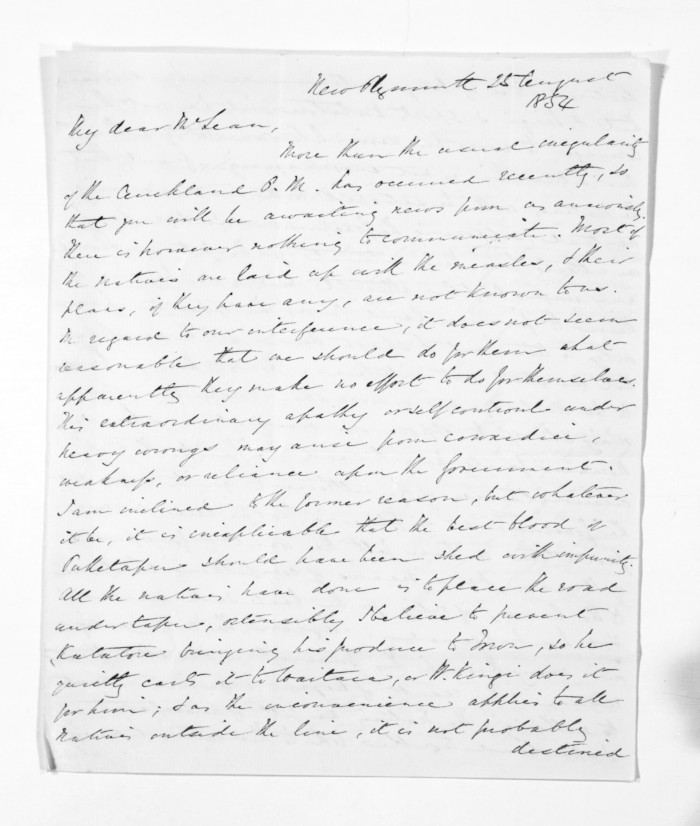 New Plymouth 25 August
1854
My dear McLean,
More than the usual irregularity
of the Auckland P.M. has occurred recently, so
that you will be awaiting news from us anxiously.
There is however nothing to communicate. Most of
the natives are laid up with the measles, & their
plans, if they have any, are not known to us.
In regard to our interference, it does not seem
reasonable that we should do for them what
apparently they make no effort to do for themselves.
This extraordinary apathy or self control under
heavy wrongs may arise from cowardice,
weakness, or reliance upon the Government.
I am inclined to the former reason, but whatever
it be, it is inexplicable that the best blood of
Puketapu should have been shed with impunity.
All the natives have done is to place the road
under tapu, ostensibly I believe to prevent
Katatore bringing his produce to Town, so he
quietly carts it to Waitara, or W. Kingi does it
for him; & as the inconvenience applies to all
natives outside the line, it is not probably
destined